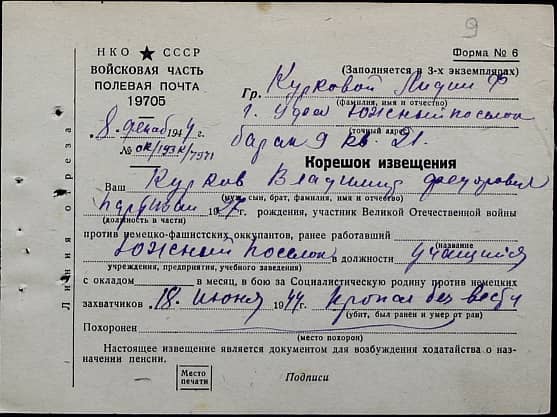 9
НКО ★ СССР
ВОЙСКОВАЯ ЧАСТЬ
ПОЛЕВАЯ ПОЧТА
19705
8 декабр 1944 г.
№ 0к/193к/7971
Форма № 6
(Заполняется в 3-х экземплярах)
Гр. Курковой Лидии Ф
(фамилия, имя и отчество)
г. Южный поселок
(точный адрес)
барак 9 кв. 21.
Корешок извещения
Ваш Курков Владимир Федорович
(муж, сын, брат, фамилия, имя и отчество)
19 г. рождения, участник Великой Отечественной войны
(должность в части)
против немецко-фашистских оккупантов, ранее работавший
(название
Южный поселок в должности учащийся
учреждения, предприятия, учебного заведения)
с окладом в месяц, в бою за Социалистическую родину против немецких
захватчиков 18 июня 1944 г. пропал без вести
(убит, был ранен и умер от ран)
Похоронен
(место похорон)
Настоящее извещение является документом для возбуждения ходатайства о на-
значении пенсии.
Место
печати
Подписи
Линия отреза